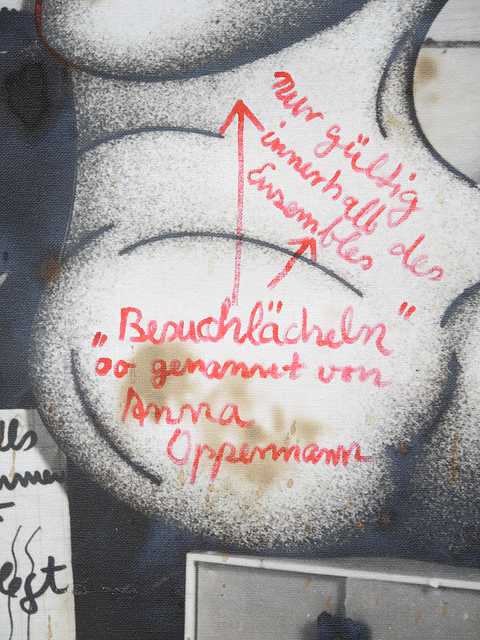 Nur gültig
innerhalb des
Ensembles
„Besuchlächeln"
so genannt von
Anna
Oppermann
legt